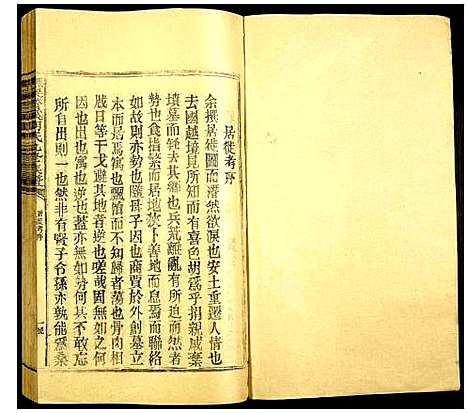 居徙考序
余撰居徙圖而潸然欲淚也安土重遷人情也
去國越境見所知而有喜色胡爲乎捐親戚棄
墳墓而輕去其鄉也兵荒離亂有所迫而然者
勢也食指繁而居地一善地而息焉而聯絡
如故則亦勢也隨母子因也商賈於外創墓立
本而景焉寓也飄館而不知歸者蕩也骨肉相
戕日等干戈避其地者逆也嗟哉固無如之何
因也出也寓也逆也蓋亦無如勢何其不敢忘
所自出則一也然非有賢子令孫亦孰能爲桑
居徙考序